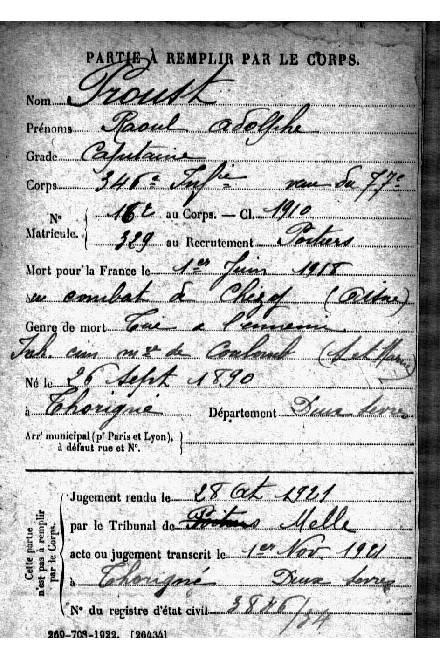 PARTIE À REMPLIR PAR LE CORPS.
Nom Proust
Prénoms Raoul Adolphe
Grade Capitaine
Corps 346e Infie venu du 77e
N° Matricule. { 162 au Corps. — Cl. 1910
329 au Recrutement Poitiers
Mort pour la France le 1er Juin 1918
au combat de Chézy (Aisne)
Genre de mort Tué à l'ennemi
Inh. cim. de (Set Marne)
Né le 26 Sept 1890
à Thorigné Département Deux Sèvres
Arrt municipal (pr Paris et Lyon), à défaut rue et N°. }
Cette partie n'est pas à remplir par le Corps. {
Jugement rendu le 28 Oct 1921
par le Tribunal de Poitiers Melle
acte ou jugement transcrit le 1er Nov 1921
à Thorigné Deux Sèvres
N° du registre d'état civil 34
269-708-1922. [26434]